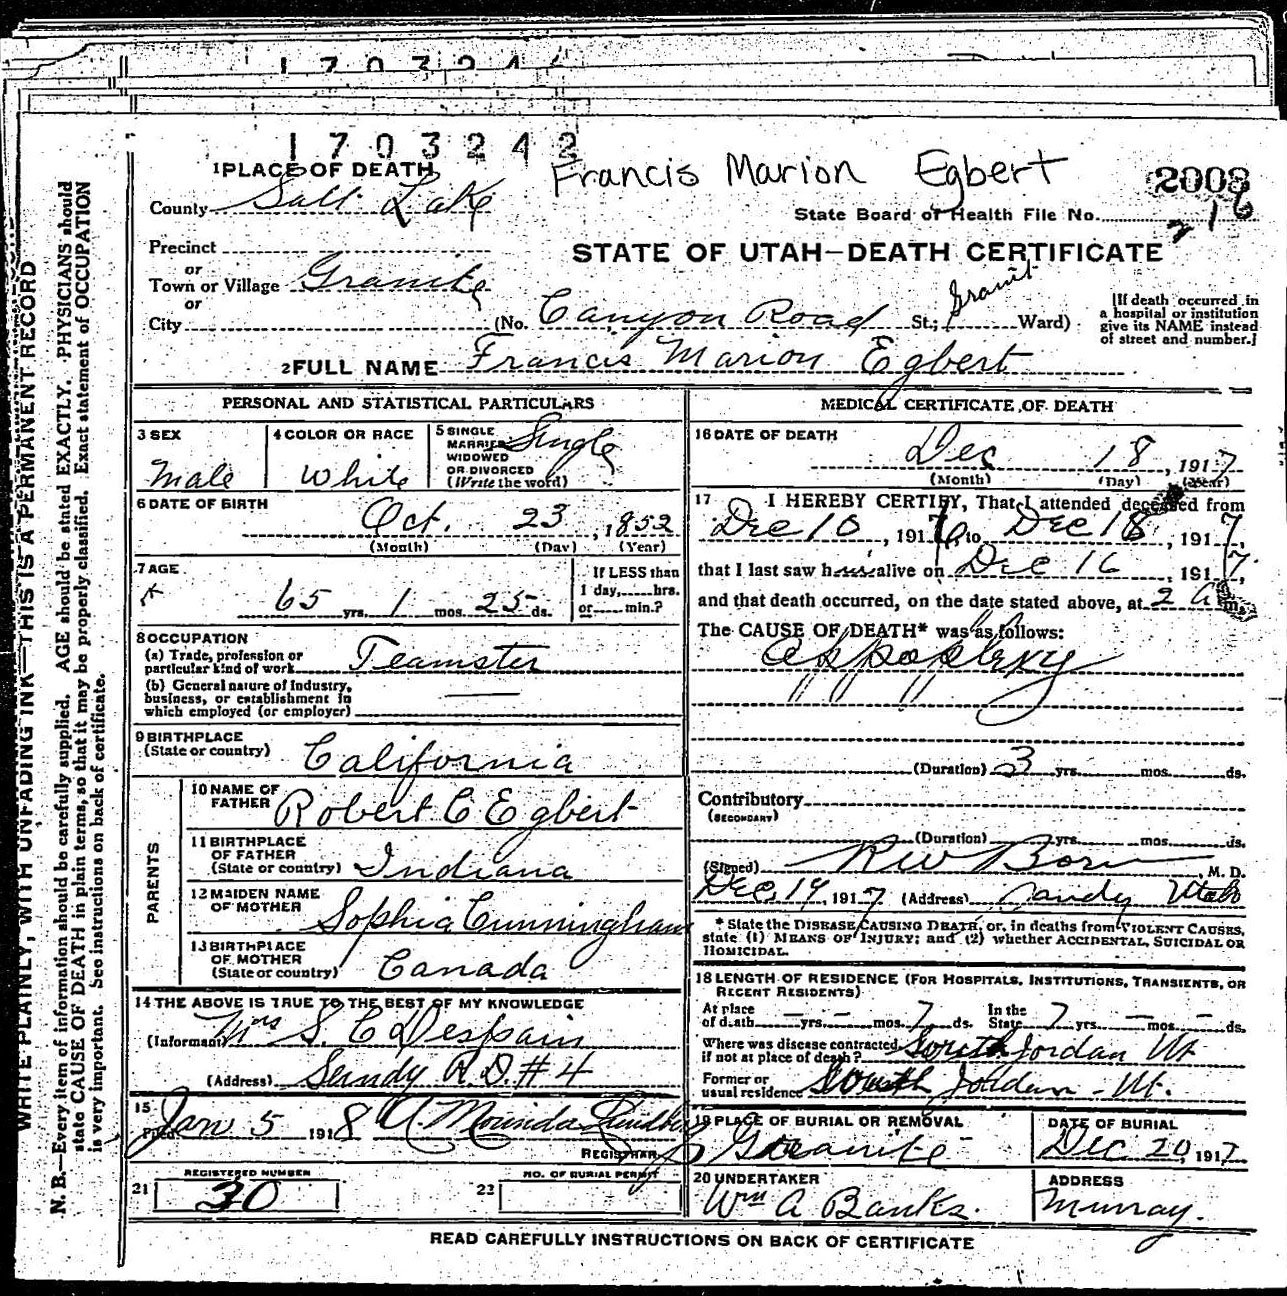 1703242
1703242
1 PLACE OF DEATH
Francis Marion Egbert
2008
County Salt Lake
State Board of Health File No. 216
Precinct
STATE OF UTAH—DEATH CERTIFICATE
or
Town or Village Granite
or
City (No. Canyon Road St.; Granit Ward)
[If death occurred in
a hospital or institution
give its NAME instead
of street and number.]
2 FULL NAME Francis Marion Egbert
PERSONAL AND STATISTICAL PARTICULARS
3 SEX
Male
4 COLOR OR RACE
White
5 SINGLE
MARRIED
WIDOWED
OR DIVORCED
(Write the word)
Single
6 DATE OF BIRTH
Oct. 23, 1852
(Month) (Day) (Year)
7 AGE
65 yrs. 1 mos. 25 ds.
If LESS than
1 day, hrs.
or min.?
8 OCCUPATION
(a) Trade, profession or
particular kind of work Teamster
(b) General nature of industry,
business, or establishment in
which employed (or employer)
9 BIRTHPLACE
(State or country) California
PARENTS
10 NAME OF
FATHER Robert C Egbert
11 BIRTHPLACE
OF FATHER
(State or country) Indiana
12 MAIDEN NAME
OF MOTHER Sophia Cunningham
13 BIRTHPLACE
OF MOTHER
(State or country) Canada
14 THE ABOVE IS TRUE TO THE BEST OF MY KNOWLEDGE
(Informant) Mrs S. C Despain
(Address) Sandy R.D. #4
15
Filed Jan 5 1918
REGISTRAR
REGISTERED NUMBER
21 30
NO. OF BURIAL PERMIT
22
MEDICAL CERTIFICATE OF DEATH
16 DATE OF DEATH
Dec 18, 1917
(Month) (Day) (Year)
17 I HEREBY CERTIFY, That I attended deceased from
Dec 10, 1917, to Dec 18, 1917,
that I last saw him alive on Dec 16, 1917,
and that death occurred, on the date stated above, at 2 a m.
The CAUSE OF DEATH* was as follows:
Appoplexy
(Duration) 3 yrs. mos. ds.
Contributory
(SECONDARY)
(Duration) yrs. mos. ds.
(Signed) R W Born, M. D.
Dec, 19, 1917 (Address) Sandy Utah
* State the DISEASE CAUSING DEATH, or, in deaths from VIOLENT CAUSES,
state (1) MEANS OF INJURY; and (2) whether ACCIDENTAL, SUICIDAL OR
HOMICIDAL.
18 LENGTH OF RESIDENCE (FOR HOSPITALS, INSTITUTIONS, TRANSIENTS, OR
RECENT RESIDENTS)
At place
of death — yrs. — mos. 7 ds.
In the
State 7 yrs. — mos. — ds.
Where was disease contracted,
if not at place of death? South Jordan Ut
Former or
usual residence South Jordan - Ut.
19 PLACE OF BURIAL OR REMOVAL
Granite
DATE OF BURIAL
Dec 20, 1917
20 UNDERTAKER
Wm A Banks.
ADDRESS
Murray.
READ CAREFULLY INSTRUCTIONS ON BACK OF CERTIFICATE
WRITE PLAINLY, WITH UNFADING INK—THIS IS A PERMANENT RECORD
N. B.—Every item of information should be carefully supplied. AGE should be stated EXACTLY. PHYSICIANS should
state CAUSE OF DEATH in plain terms, so that it may be properly classified. Exact statement of OCCUPATION
is very important. See instructions on back of certificate.